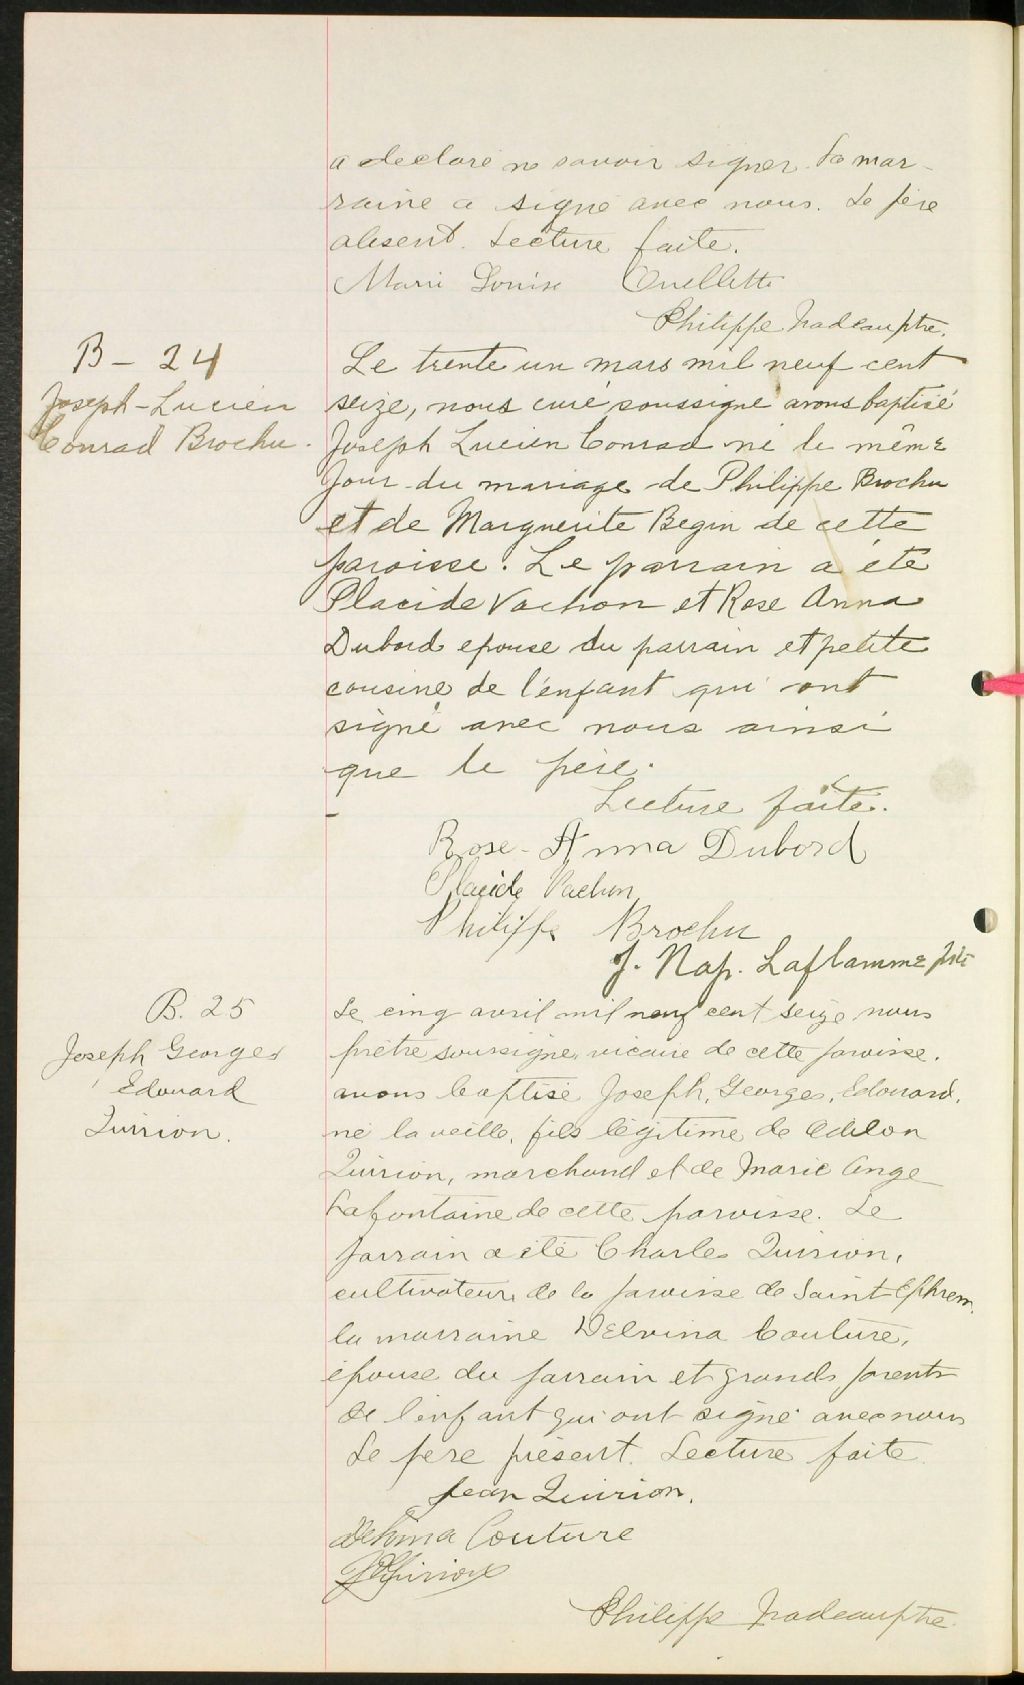 a declaré ne savoir signer. La mar-
raine a signé avec nous. Le père
absent. Lecture faite.
Marie Louise Ouellette
Philippe Nadeau ptre.
B - 24
Joseph-Lucien
Conrad Brochu.
Le trente un mars mil neuf cent
seize, nous curé soussigné avons baptisé
Joseph Lucien Conrad né le même
jour du mariage de Philippe Brochu
et de Marguerite Begin de cette
paroisse. Le parrain a été
Placide Vachon et Rose Anna
Dubord epouse du parrain et petite
cousine de l'enfant qui ont
signé avec nous ainsi
que le père.
Lecture faite.
Rose-Anna Dubord
Placide Vachon
Philippe Brochu
J. Nap. Laflamme ptre
B. 25
Joseph Georges
Edouard
Quirion.
Le cinq avril mil neuf cent seize nous
prêtre soussigné, vicaire de cette paroisse.
avons baptisé Joseph, Georges, Edouard,
né la veille, fils légitime de Odilon
Quirion, marchand et de Marie Ange
Lafontaine de cette paroisse. Le
parrain a été Charles Quirion,
cultivateur, de la paroisse de Saint Ephrem.
la marraine Delvina Couture,
épouse du parrain et grands parents
de l'enfant qui ont signé avec nous
Le père présent. Lecture faite.
Jean Quirion.
Couture
Quirion
Philippe Nadeau ptre.